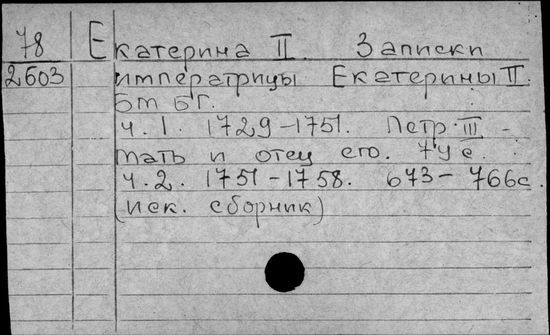 78 Екатерина II. Записки
2603 императрицы Екатерины II.
Бт бг.
ч. 1. 1729-1751. Петр III -
мать и отец его. 74 с.
ч. 2. 1751-1758. 673-766с.
(иск. сборник)